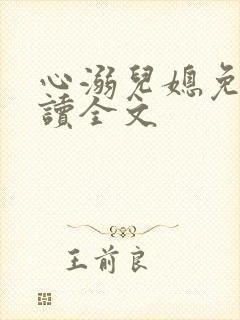 心溺兒媳免
讀全文
王前良